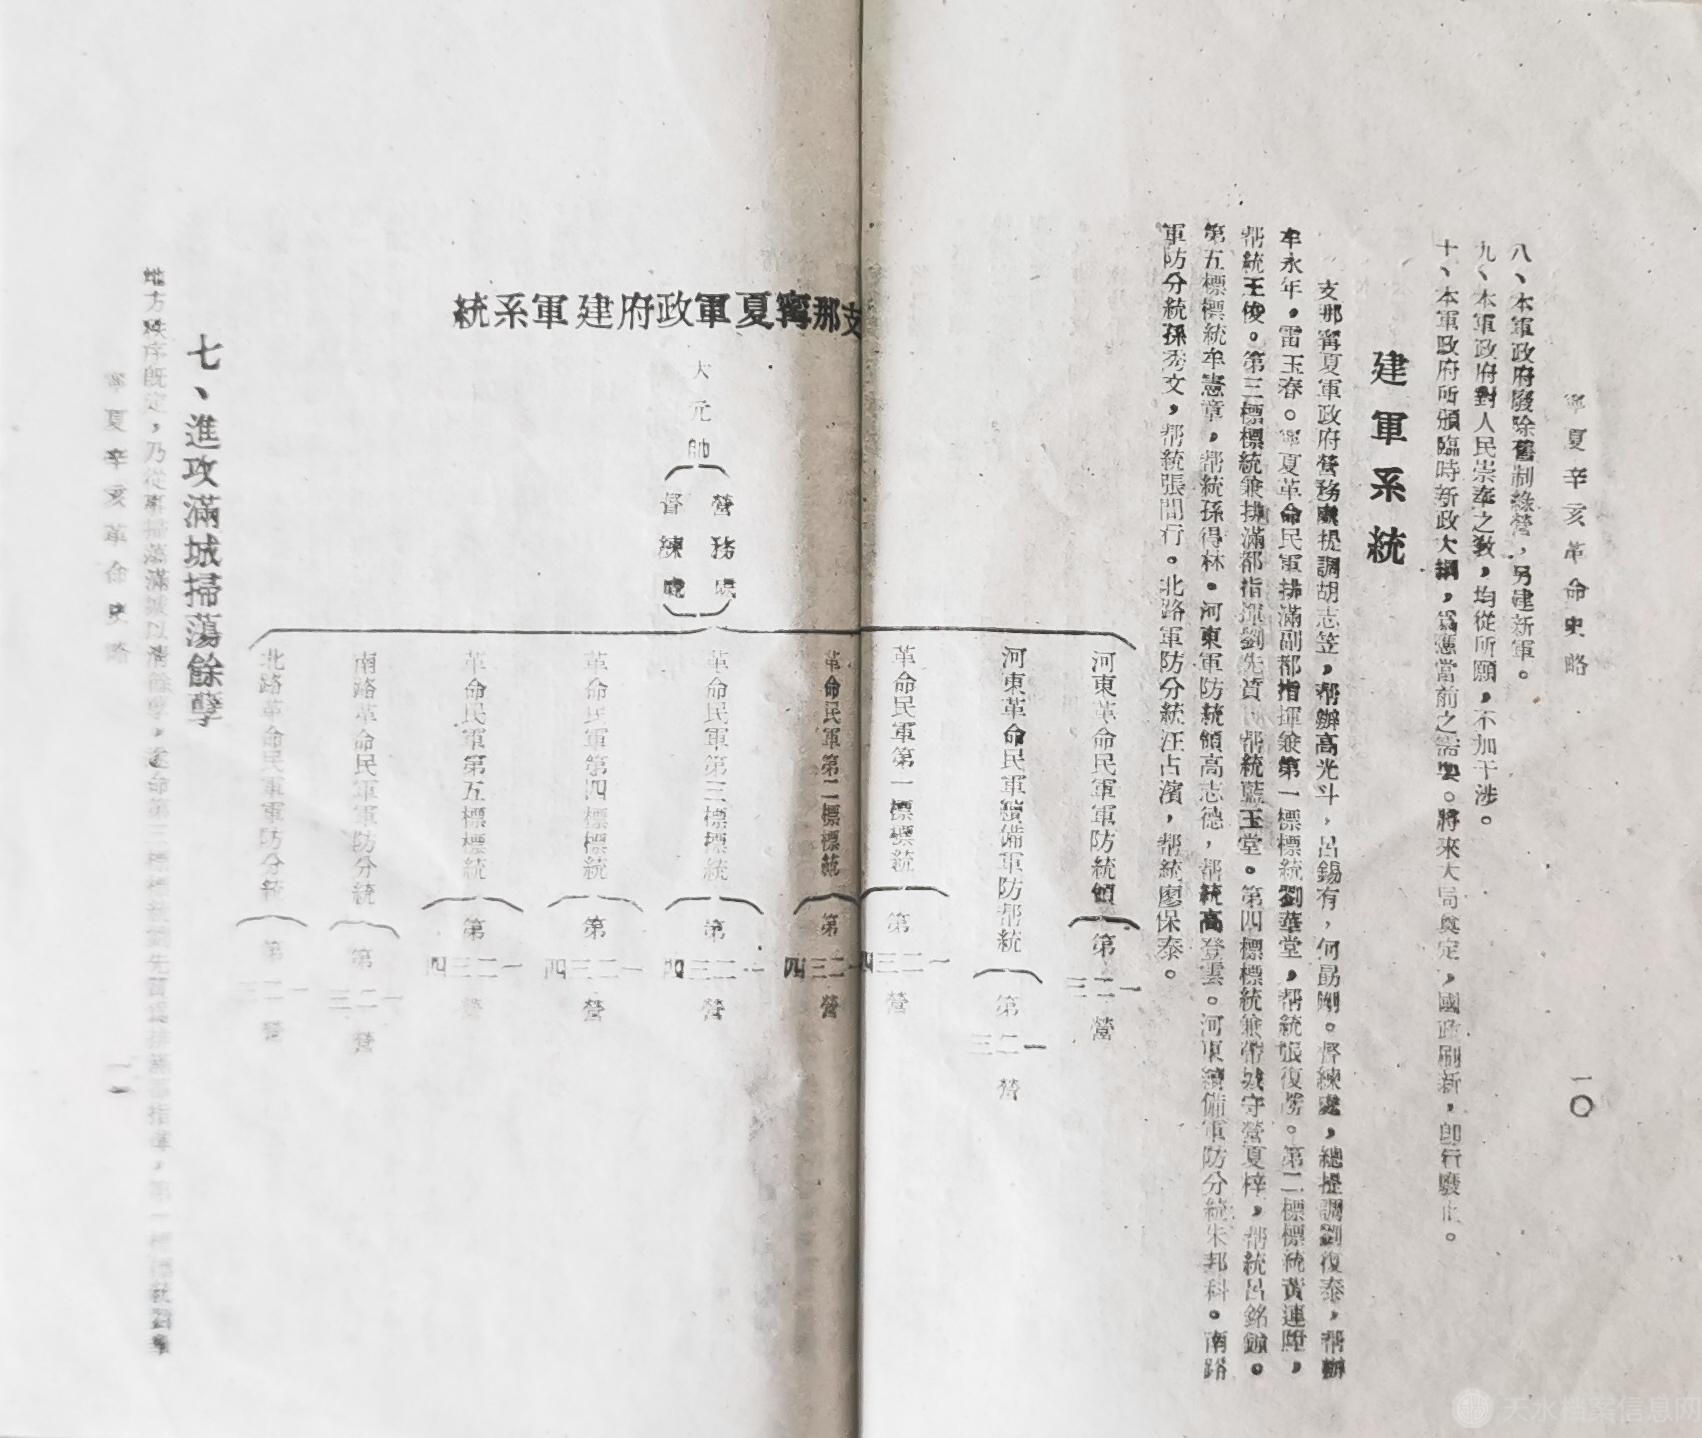 寧夏辛亥革命史略
一〇
八、本軍政府廢除舊制綠營,另建新軍。
九、本軍政府對人民崇奉之教,均從所願,不加干涉。
十、本軍政府所頒臨時新政大綱,為應當前之需要。將來大局奠定,國政刷新,卽行廢止。
建軍系統
支那甯夏軍政府營務處提調胡志笠,幇辦高光斗,呂錫有,何勗剛。督練處,總提調劉復泰,幇辦
牟永年,雷玉春。寧夏革命民軍排滿副都指揮兼第一標標統劉華堂,幇統張復勝。第二標標統黃連陞,
幇統王俊。第三標標統兼排滿都指揮劉先質 幇統藍玉堂。第四標標統兼帶城守營夏梓,幇統呂銘鏞。
第五標標統牟憲章,幇統孫得林。河東軍防統領高志德,幇統高登雲。河東續備軍防分統朱邦科。南路
軍防分統孫秀文,幇統張問行。北路軍防分統汪占濱,幇統廖保泰。
支那甯夏軍政府建軍系統
大元帥
營務處
督練處
河東革命民軍軍防統領 第一二三營
河東革命民軍續備軍防幇統 第一二三營
革命民軍第一標標統 第一二三四營
革命民軍第二標標統 第一二三四營
革命民軍第三標標統 第一二三四營
革命民軍第四標標統 第一二三四營
革命民軍第五標標統 第一二三四營
南路革命民軍軍防分統 第一二三營
北路革命民軍軍防分統 第一二三營
七、進攻滿城掃蕩餘孽
地方秩序旣定,乃從事掃蕩滿城以清餘孽,遂命第三標標統劉先質爲排滿都指揮,第一標標統劉華
寧夏辛亥革命史略
一一
天水档案信息网